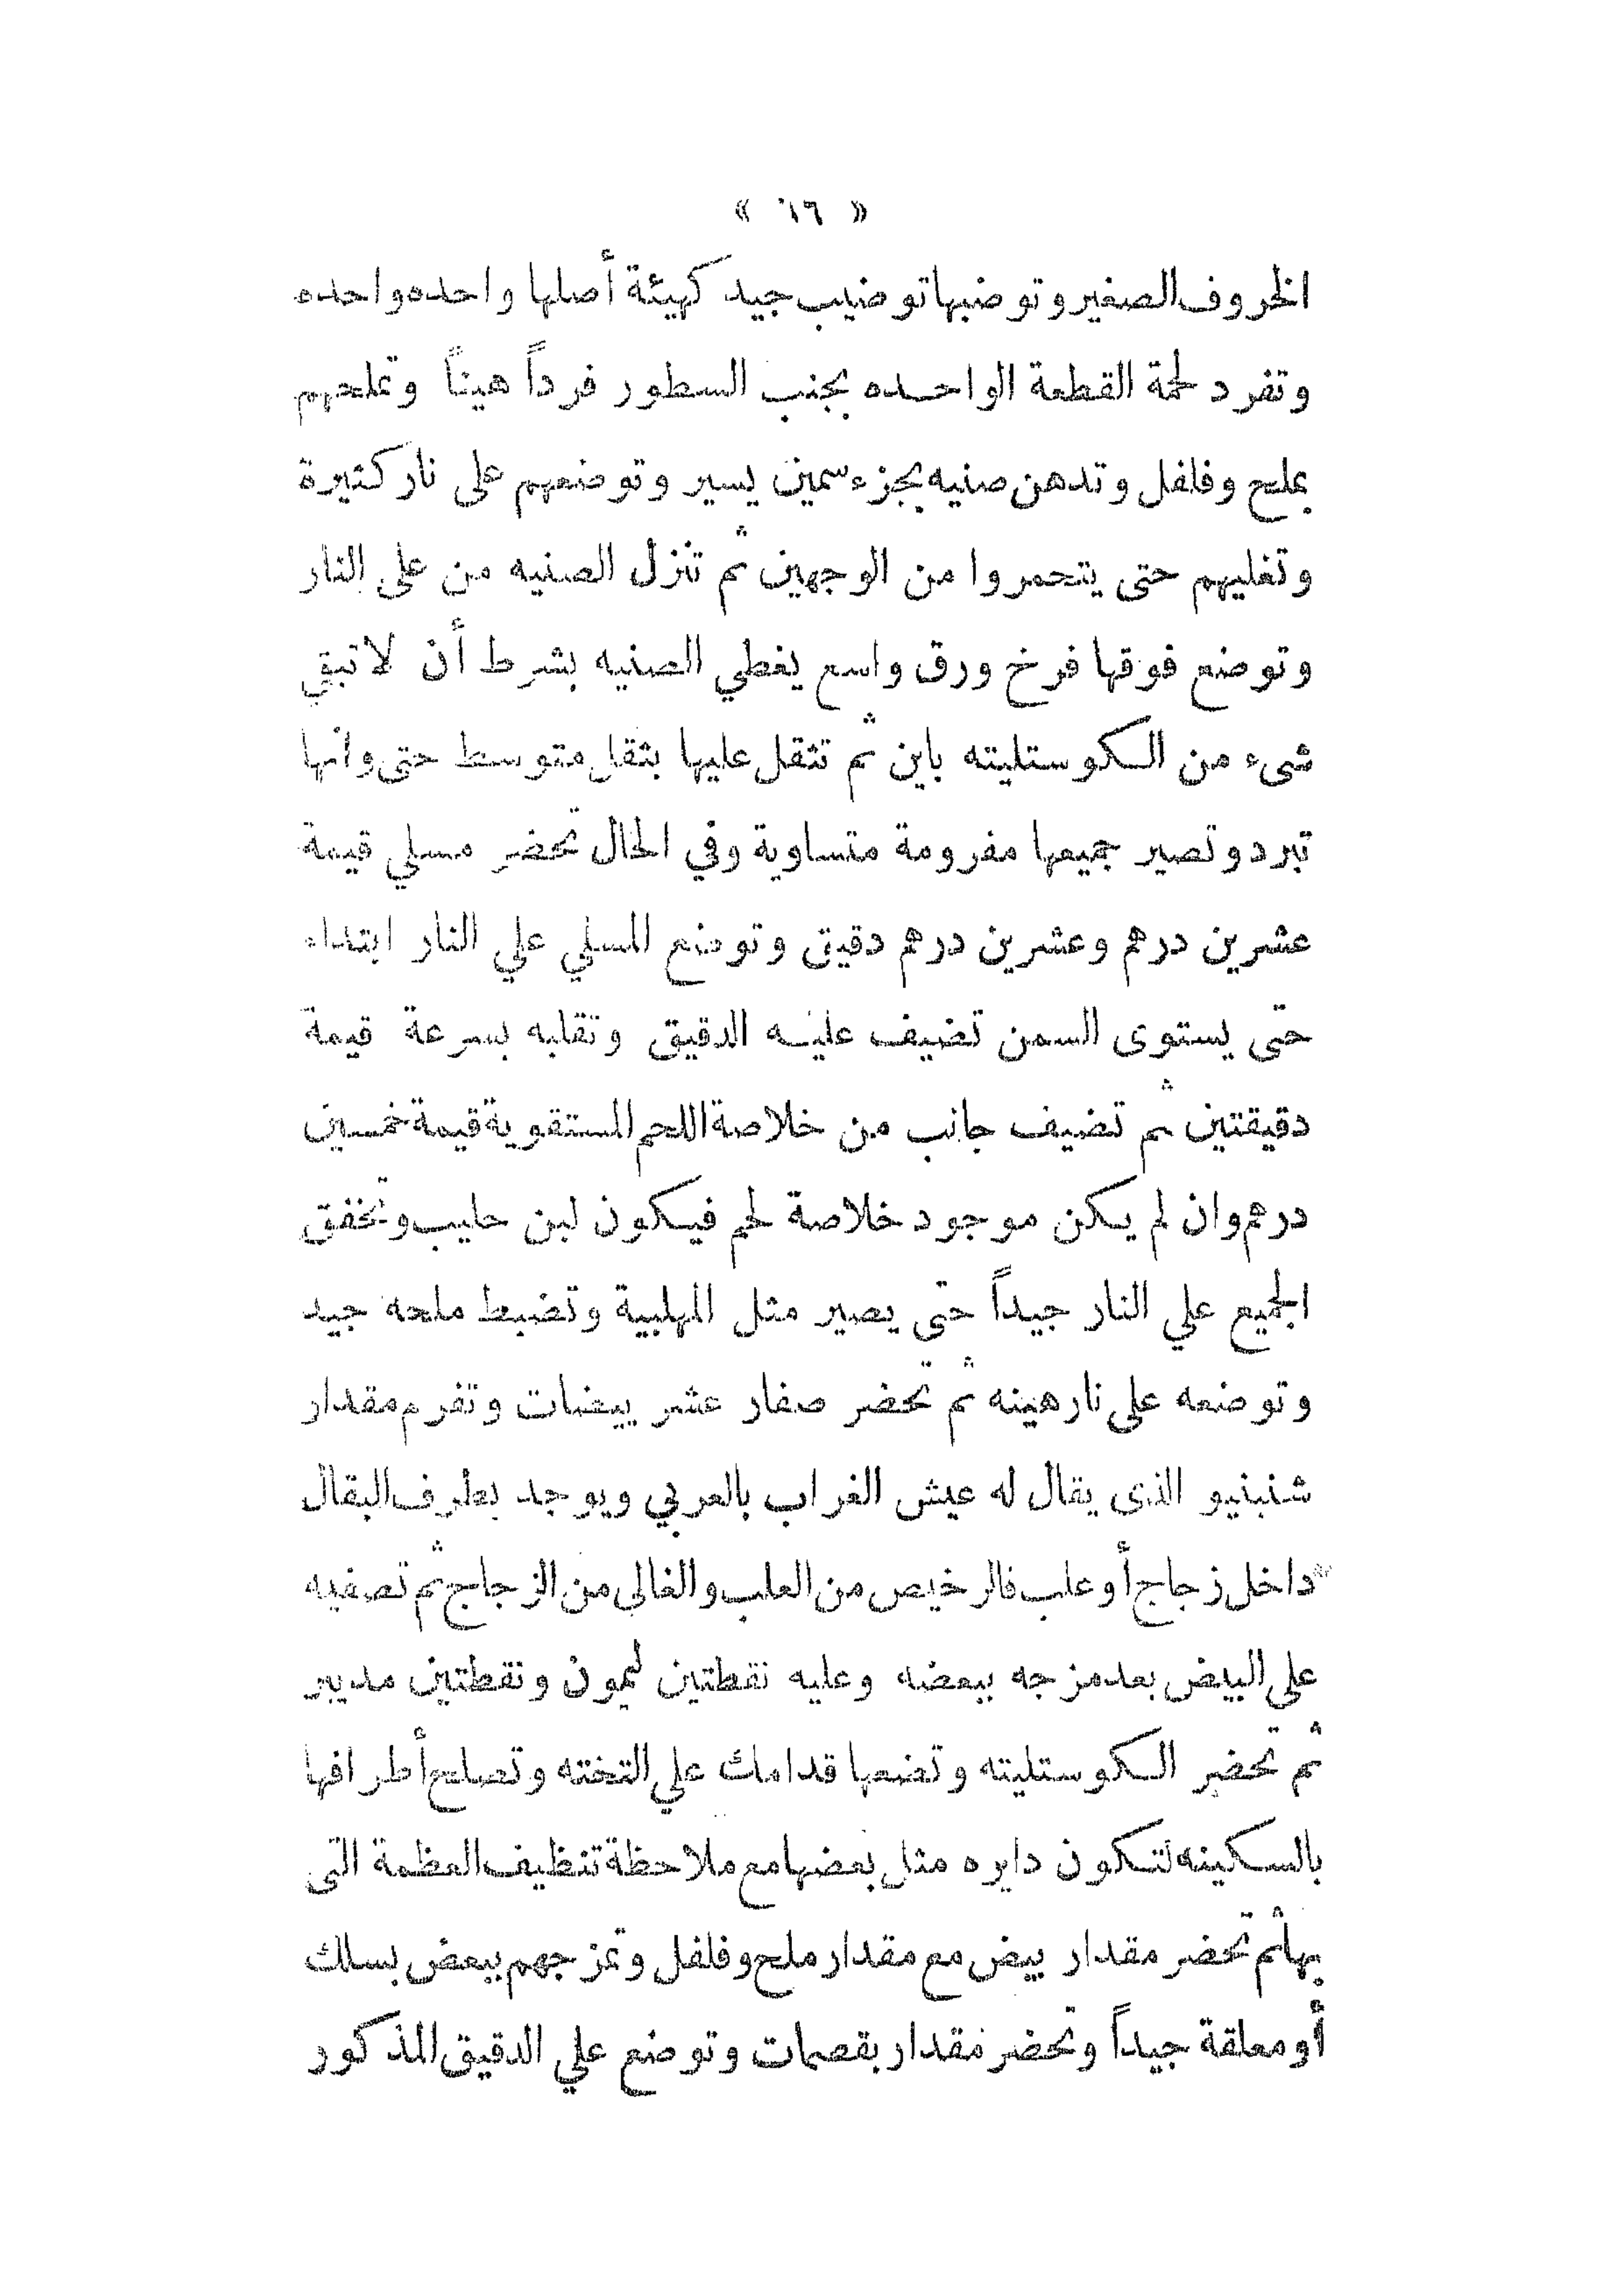 « ١٦ »
الخروف الصغير وتوضبها توضيب جيد كهيئة أصلها واحده واحده
وتفرد لحمة القطعة الواحده بجنب السطور فرداً هيناً وتملحهم
بملح وفلفل وتدهن صنيه بجزء سمين يسير وتوضعهم على نار كثيرة
وتغليهم حتى يتحمروا من الوجهين ثم تنزل الصنيه من على النار
وتوضع فوقها فرخ ورق واسع يغطي الصنيه بشرط أن لا تبقي
شىء من الكوستليته باين ثم تثقل عليها بثقل متوسط حتى وانها
تبرد وتصير جميعها مفرومة متساوية وفي الحال تحضر مسلي قيمة
عشرين درهم وعشرين درهم دقيق وتوضع المسلي علي النار ابتداء
حتى يستوى السمن تضيف عليه الدقيق وتقلبه بسرعة قيمة
دقيقتين ثم تضيف جانب من خلاصة اللحم المستقوية قيمة خمسين
درهم وان لم يكن موجود خلاصة لحم فيكون لبن حليب وتخفق
الجميع علي النار جيداً حتى يصير مثل المهلبية وتضبط ملحه جيد
وتوضعه على نار هينه ثم تحضر صفار عشر بيضات وتفرم مقدار
شنبنيو الذى يقال له عيش الغراب بالعربي ويوجد بطرف البقال
داخل زجاج أو علب فالرخيص من العلب والغالى من الزجاج ثم تصفيه
على البيض بعد مزجه ببعضه وعليه نقطتين ليمون ونقطتين مديبر
ثم تحضر الكوستليته وتضعها قدامك علي التخته وتصلح أطرافها
بالسكينه لتكون دايره مثل بعضها مع ملاحظة تنظيف العظمة التى
بها ثم تحضر مقدار بيض مع مقدار ملح وفلفل وتمزجهم ببعض بسلك
أو معلقة جيداً وتحضر مقدار بقصمات وتوضع علي الدقيق المذكور